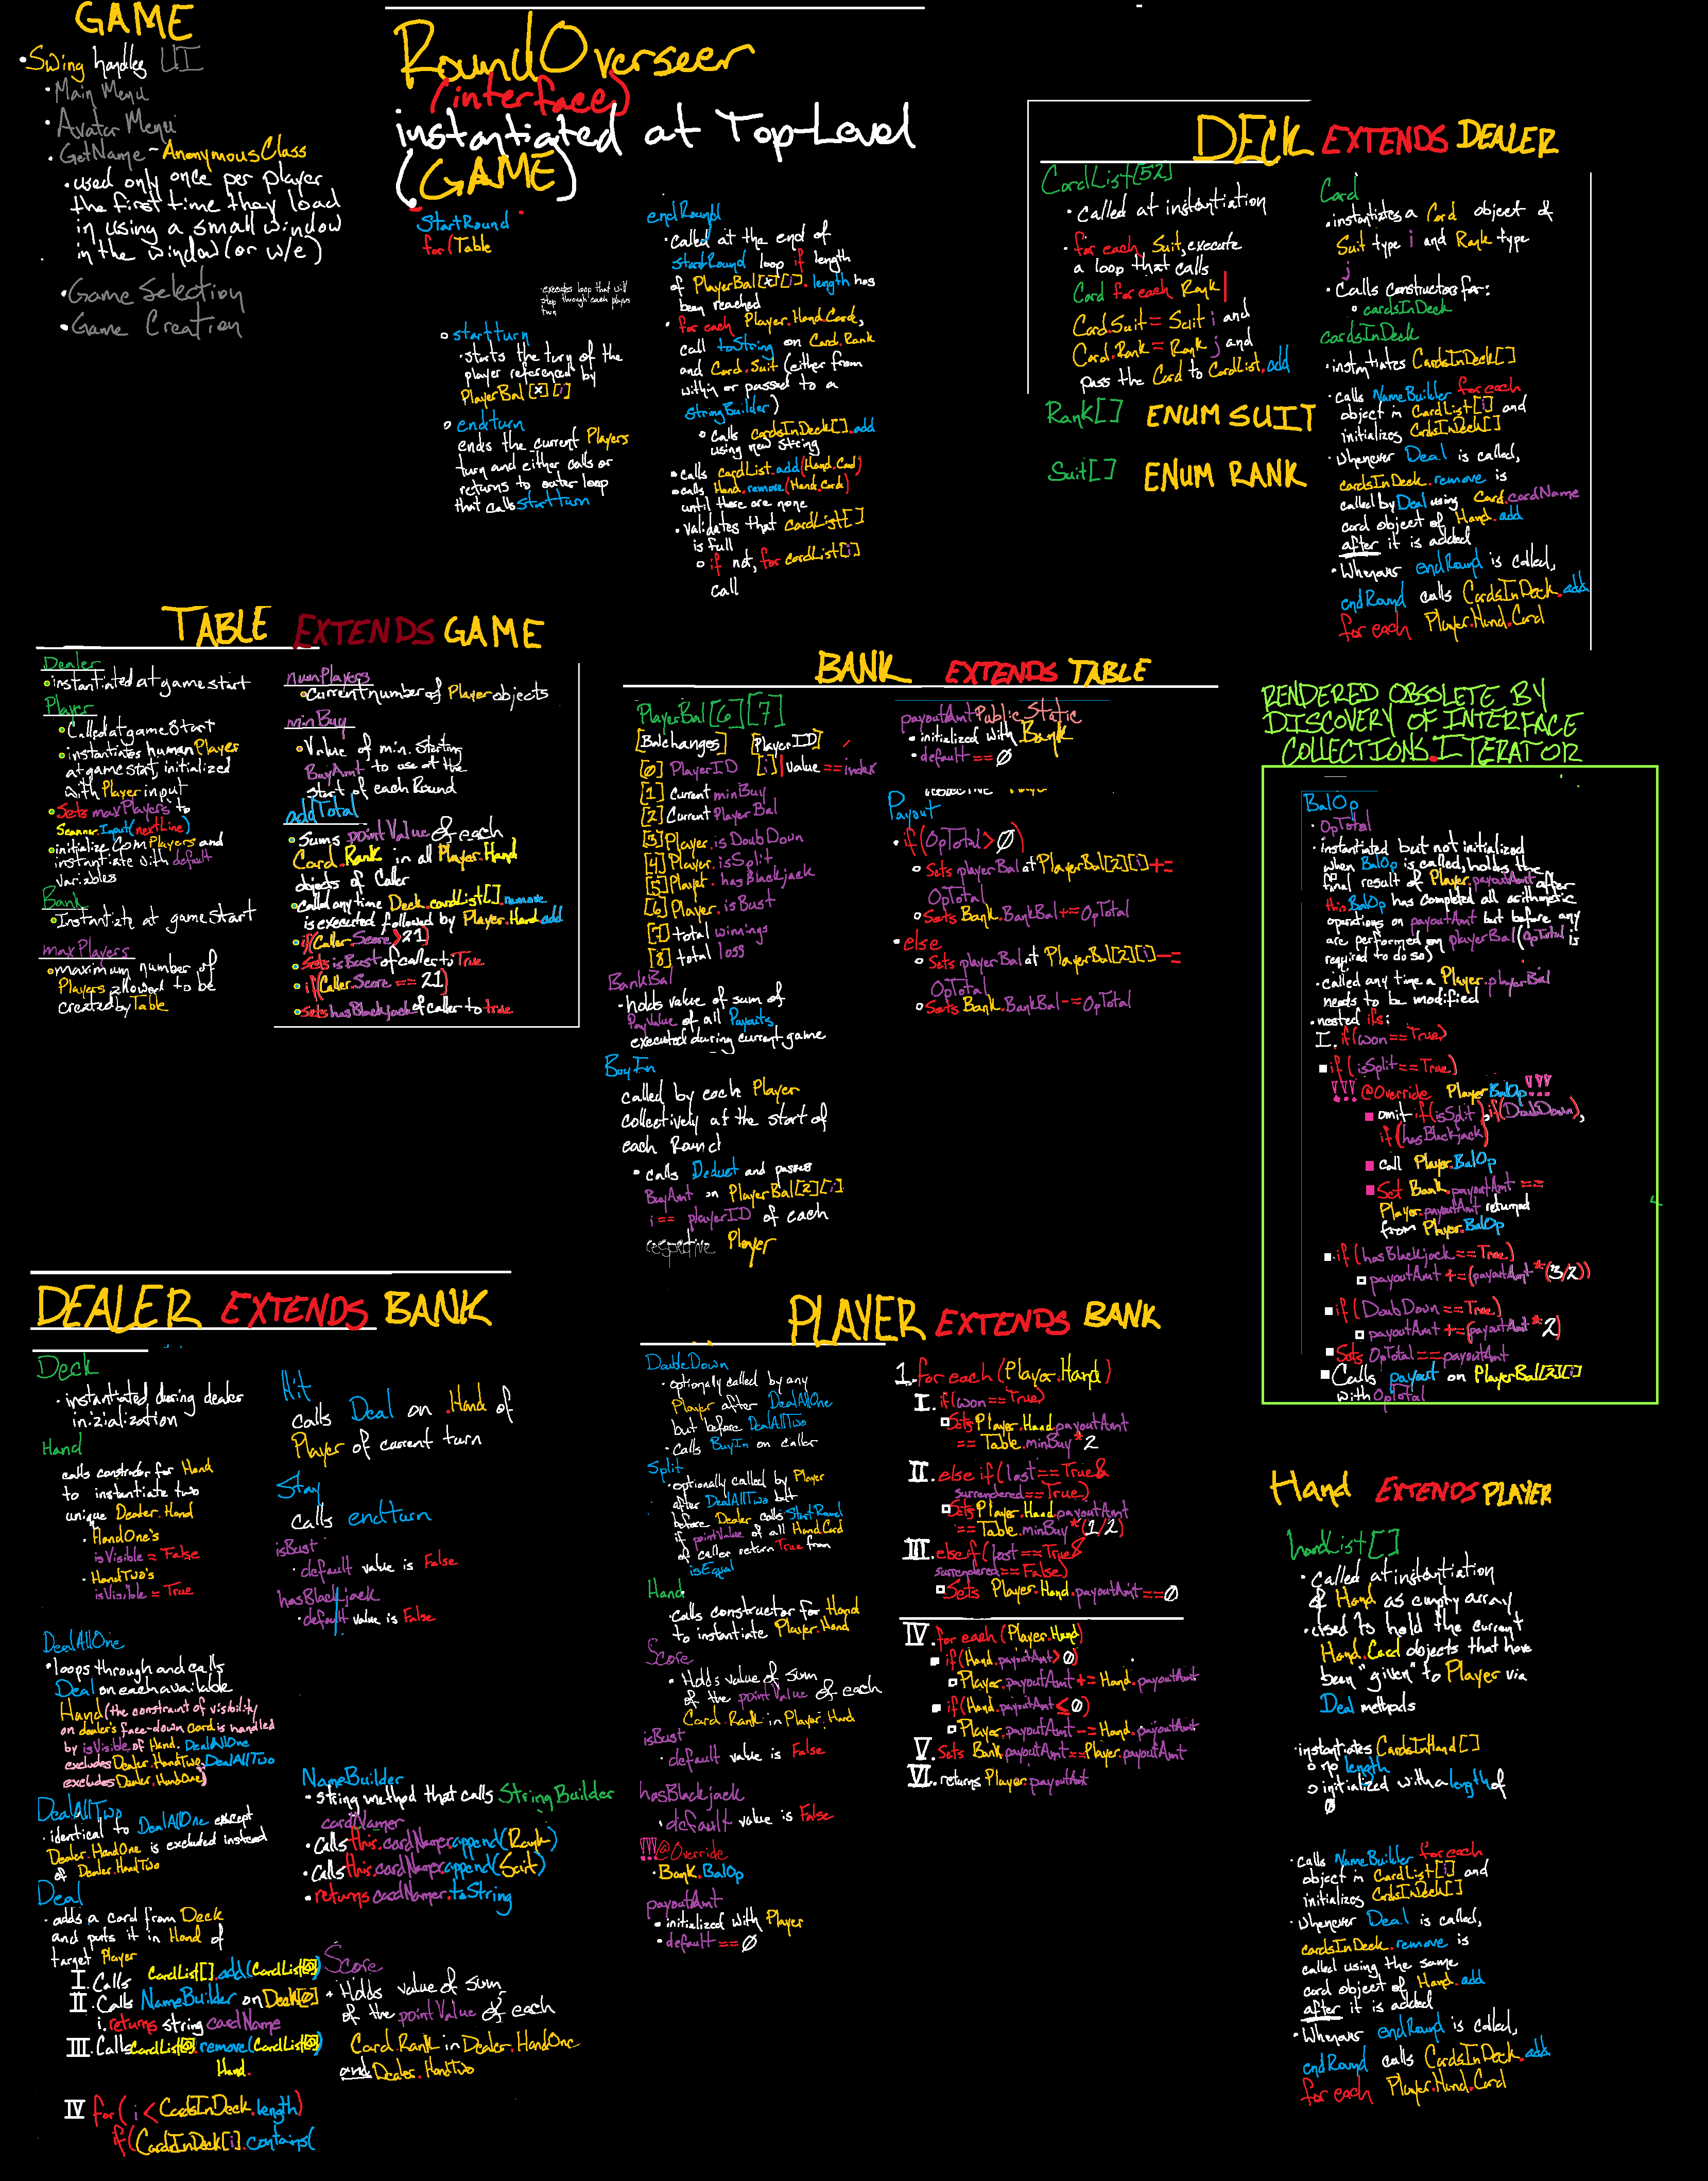 GAME
•Swing handles UI
•Main Menu
•Avatar Menu
•GetName~AnonymousClass
•used only once per player
the first time they load
in using a small window
in the window (or w/e)
•Game Selection
•Game Creation
RoundOverseer
(interface)
instantiated at Top-Level
(GAME)
StartRound
for(Table
executes loop that will
step through each players
turn
startturn
•starts the turn of the
player referenced by
PlayerBal[x][i]
endturn
ends the current Players
turn and either calls or
returns to outer loop
that calls startturn
endRound
•called at the end of
startRound loop if length
of PlayerBal[x][i].length has
been reached
•for each Player.Hand.Card,
call toString on Card.Rank
and Card.Suit (either from
within or passed to a
StringBuilder)
calls cardsInDeck[].add
using new string
•calls cardList.add(Hand.Card)
•calls Hand.remove(Hand.Card)
until there are none
•validates that cardList[]
is full
if not, for cardList[i]
call
DECK EXTENDS DEALER
CardList[52]
•Called at instantiation
•for each Suit, execute
a loop that calls
Card for each Rank|
Card.Suit = Suit i and
Card.Rank = Rank j and
pass the Card to CardList.add
Rank[] ENUM SUIT
Suit[] ENUM RANK
Card
•instantiates a Card object of
Suit type i and Rank type
j
•Calls Constructor for:
cardsInDeck
cardsInDeck
•instantiates CardsInDeck[]
•calls NameBuilder for each
object in CardList[i] and
initializes CardsInDeck[]
•Whenever Deal is called,
cardsInDeck.remove is
called by Deal using Card.cardName
card object of Hand.add
after it is added
•Whenever endRound is called,
endRound calls CardsInDeck.add
for each Player.Hand.Card
TABLE EXTENDS GAME
Dealer
•instantiated at game start
Player
•Called at game Start
•instantiates human Player
at game start, initialized
with Player input
•Sets maxPlayers to
Scanner.Input(nextLine)
•initialize Com Players and
instantiate with default
variables
Bank
•Instantiate at game start
maxPlayers
•maximum number of
Players allowed to be
created by Table
numPlayers
•Current number of Player objects
minBuy
•Value of min. starting
BuyAmt to use at the
start of each Round
addTotal
•Sums pointValue of each
Card.Rank in all Player.Hand
objects of Caller
•called any time Deck.cardList[].remove
is executed followed by Player.Hand.add
•if(Caller.Score>21)
•Sets isBust of caller to True
•if(Caller.Score == 21)
•Sets hasBlackjack of caller to true
BANK EXTENDS TABLE
PlayerBal[6][7]
[Balchanges] [PlayerID]
[0] PlayerID [i]|value==index
[1] Current minBuy
[2] Current Player Bal
[3] Player.isDoubDown
[4] Player.isSplit
[5] Player.hasBlackjack
[6] Player.isBust
[7] total winnings
[8] total loss
BankBal
•holds value of sum of
PayValue of all Payouts
executed during current game
BuyIn
called by each Player
collectively at the start of
each Round
•calls Deduct and passes
BuyAmt on PlayerBal[2][i]
i== playerID of each
respective Player
payoutAmt Public Static
•initialized with Bank
•default==0
Payout
•if(OpTotal>0)
Sets playerBal at PlayerBal[2][i]+=
OpTotal
Sets Bank.BankBal+=OpTotal
•else
Sets playerBal at PlayerBal[2][i]-=
OpTotal
Sets Bank.BankBal-=OpTotal
RENDERED OBSOLETE BY
DISCOVERY OF INTERFACE
COLLECTIONS.ITERATOR
BalOp
•OpTotal
•instantiated but not initialized
when BalOp is called, holds the
final result of Player.payoutAmt after
this.BalOp has completed all arithmetic
operations on payoutAmt but before any
are performed on playerBal(OpTotal is
required to do so)
•called any time a Player.playerBal
needs to be modified
•nested ifs:
I. if(won==True)
if(isSplit==True)
!!! @Override Player.BalOp!!!
omit if(isSplit), if(DoubDown),
if(hasBlackjack)
call Player.BalOp
Set Bank.payoutAmt ==
Player.payoutAmt returned
from Player.BalOp
if(hasBlackjack==True)
payoutAmt +=(payoutAmt*(3/2))
if(DoubDown==True)
payoutAmt +=(payoutAmt*2)
Sets OpTotal==payoutAmt
Calls payout on PlayerBal[2][i]
with OpTotal
DEALER EXTENDS BANK
Deck
•instantiated during dealer
inizialization
Hand
calls constructor for Hand
to instantiate two
unique Dealer.Hand
•HandOne's
isVisible = False
•HandTwo's
isVisible = True
DealAllOne
•loops through and calls
Deal on each available
Hand (the constraint of visibility
on dealer's face-down card is handled
by isVisible of Hand. DealAllOne
excludes Dealer.HandTwo, DealAllTwo
excludes Dealer.HandOne)
DealAllTwo
•identical to DealAllOne except
Dealer.HandOne is excluded instead
of Dealer.HandTwo
Deal
•adds a card from Deck
and puts it in Hand of
target Player
I. Calls CardList[].add(CardList[0])
II. Calls NameBuilder on Deck[0]
i. returns string cardName
III. Calls CardList[0].remove(CardList[0])
Hand.
IV for(i<CardsInDeck.length)
if(CardsInDeck[i].contains(
Hit
calls Deal on .Hand of
Player of current turn
Stay
calls endturn
isBust
•default value is False
hasBlackjack
•default value is False
NameBuilder
•string method that calls StringBuilder
cardNamer
•Calls this.cardNamer.append(Rank)
•Calls this.cardNamer.append(Suit)
•returns cardNamer.toString
Score
•Holds value of sum
of the pointValue of each
Card.Rank in Dealer.HandOne
and Dealer.HandTwo
PLAYER EXTENDS BANK
DoubleDown
•optionally called by any
Player after DealAllOne
but before DealAllTwo
•Calls BuyIn on caller
Split
•optionally called by Player
after DealAllTwo but
before Dealer calls StartRound
if pointValue of all Hand.Card
of caller return True from
isEqual
Hand
•Calls constructor for Hand
to instantiate Player.Hand
Score
•Holds value of sum
of the pointValue of each
Card.Rank in Player.Hand
isBust
•default value is False
hasBlackjack
•default value is False
!!!@Override
•Bank.BalOp
payoutAmt
•initialized with Player
•default==0
1. for each (Player.Hand)
I. if(won==True)
Sets Player.Hand.payoutAmt
== Table.minBuy*2
II. else if(lost==True&
surrendered==True)
Sets Player.Hand.payoutAmt
== Table.minBuy*(1/2)
III. else if(lost==True&
surrendered==False)
Sets Player.Hand.payoutAmt==0
IV. for each (Player.Hand)
if(Hand.payoutAmt>0)
Player.payoutAmt+=Hand.payoutAmt
if(Hand.payoutAmt≤0)
Player.payoutAmt-=Hand.payoutAmt
V. Sets Bank.payoutAmt==Player.payoutAmt
VI. returns Player.payoutAmt
Hand EXTENDS PLAYER
handList[]
•Called at instantiation
of Hand as empty array
•Used to hold the current
Hand.Card objects that have
been "given" to Player via
Deal methods
•instantiates CardsInHand[]
no length
initialized with a length of
0
•calls NameBuilder for each
object in CardList[i] and
initializes CardsInDeck[]
•Whenever Deal is called,
cardsInDeck.remove is
called using the same
card object of Hand.add
after it is added
•Whenever endRound is called,
endRound calls CardsInDeck.add
for each Player.Hand.Card